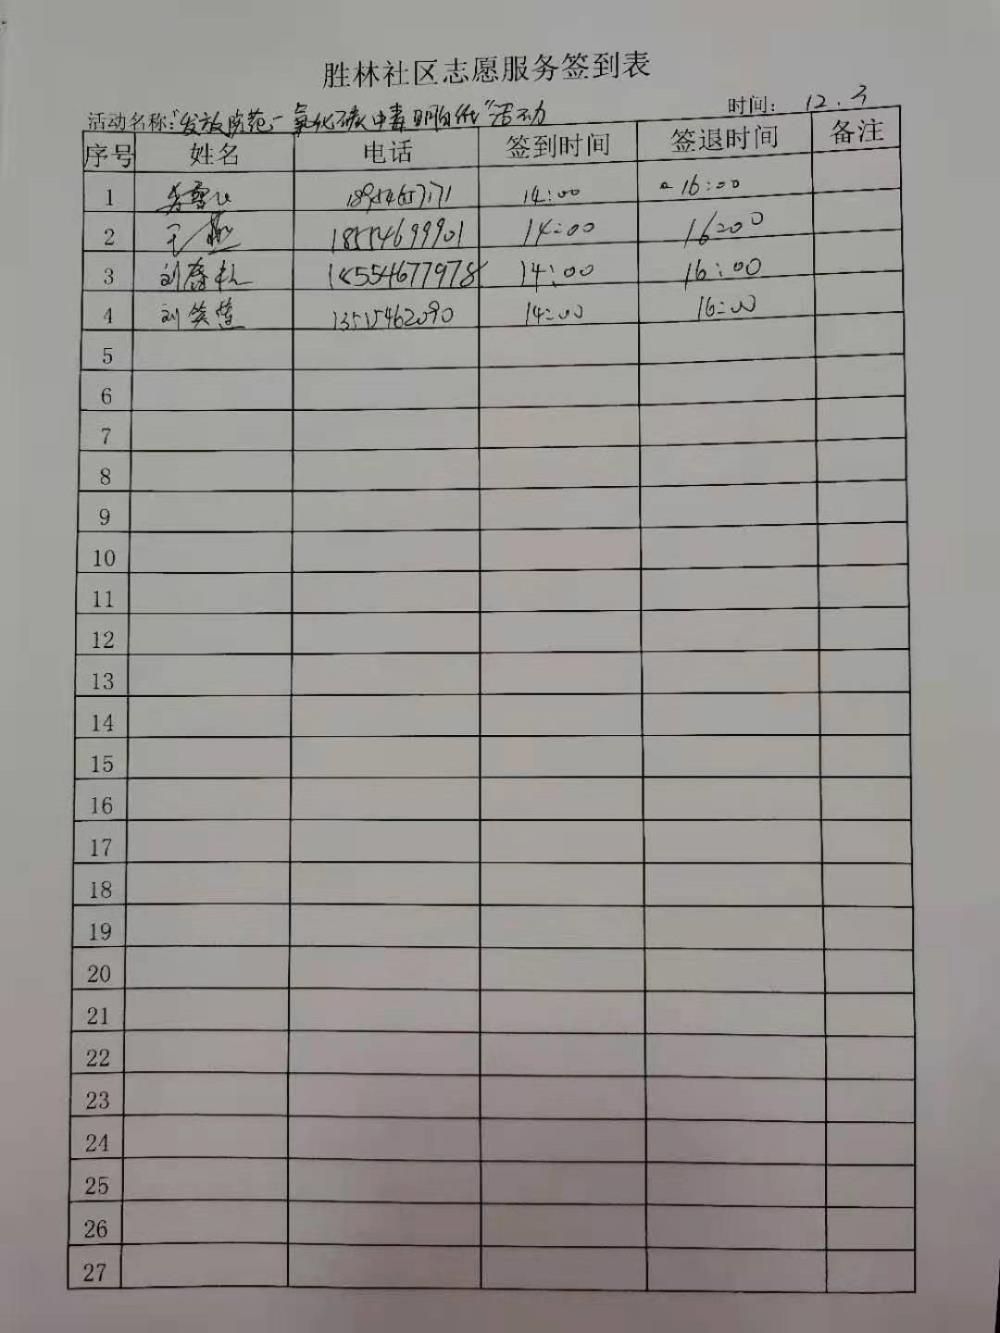 胜林社区志愿服务签到表
活动名称:"发放防范一氧化碳中毒明白纸"活动 时间: 12.3
序号 姓名 电话 签到时间 签退时间 备注
1 14:00 16:00
2 王 18554699901 14:00 16:00
3 刘 18554677978 14:00 16:00
4 刘笑莲 13515462090 14:00 16:00
5
6
7
8
9
10
11
12
13
14
15
16
17
18
19
20
21
22
23
24
25
26
27